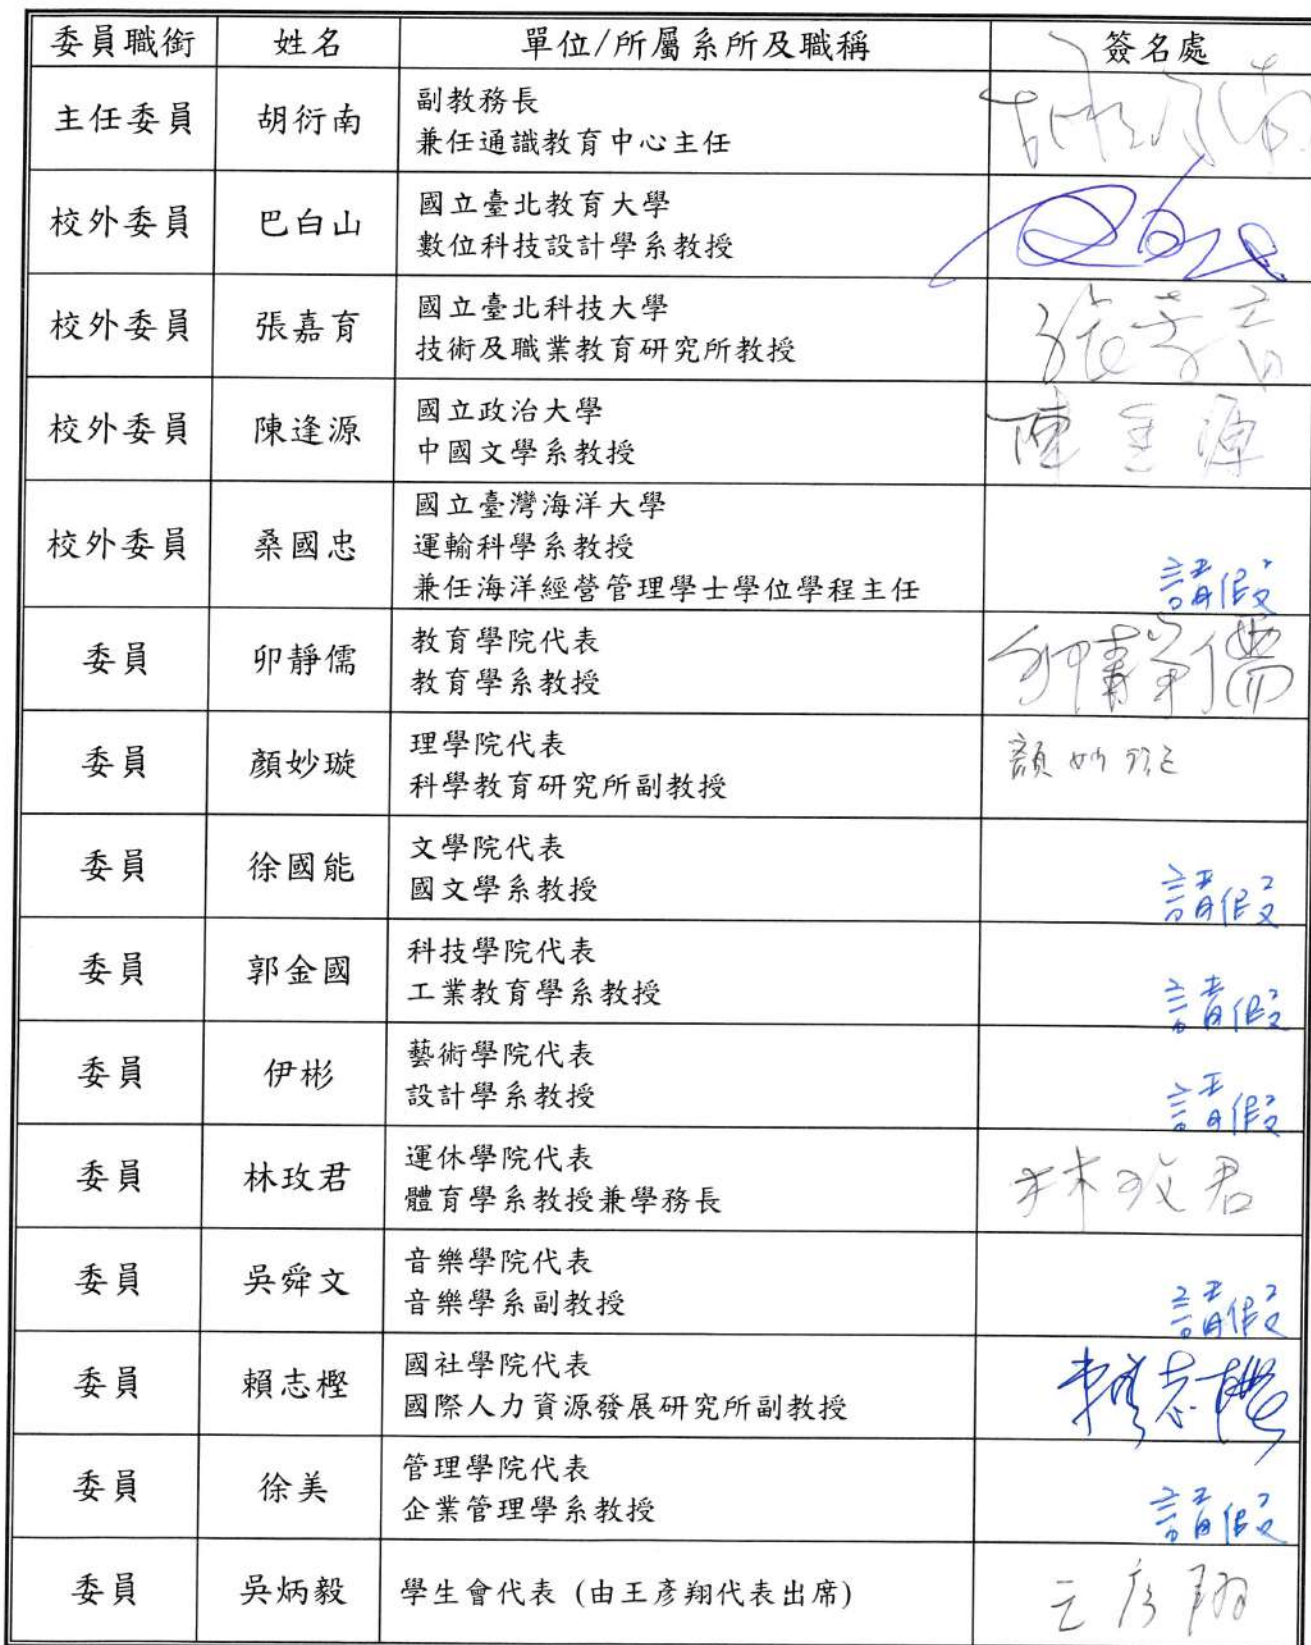 委員職銜 姓名 單位/所屬系所及職稱 簽名處
主任委員 胡衍南 副教務長
兼任通識教育中心主任 胡衍南
校外委員 巴白山 國立臺北教育大學
數位科技設計學系教授
校外委員 張嘉育 國立臺北科技大學
技術及職業教育研究所教授 張嘉育
校外委員 陳逢源 國立政治大學
中國文學系教授 陳逢源
校外委員 桑國忠 國立臺灣海洋大學
運輸科學系教授
兼任海洋經營管理學士學位學程主任 請假
委員 卯靜儒 教育學院代表
教育學系教授 卯靜儒
委員 顏妙璇 理學院代表
科學教育研究所副教授 顏妙璇
委員 徐國能 文學院代表
國文學系教授 請假
委員 郭金國 科技學院代表
工業教育學系教授 請假
委員 伊彬 藝術學院代表
設計學系教授 請假
委員 林玫君 運休學院代表
體育學系教授兼學務長 林玫君
委員 吳舜文 音樂學院代表
音樂學系副教授 請假
委員 賴志樫 國社學院代表
國際人力資源發展研究所副教授 賴志樫
委員 徐美 管理學院代表
企業管理學系教授 請假
委員 吳炳毅 學生會代表 (由王彥翔代表出席) 王彥翔